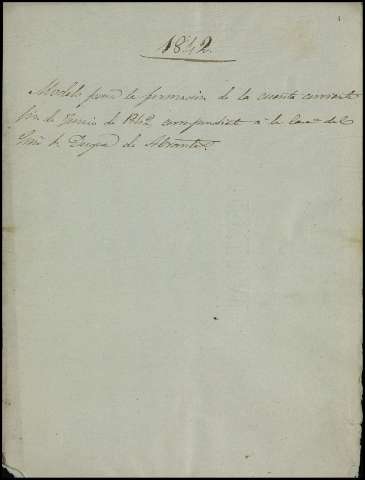 1842
Modelo para la formacion de la cuenta corriente
fin de Junio de 1842, correspondiente á la Casa del
Duque de Abrantes.